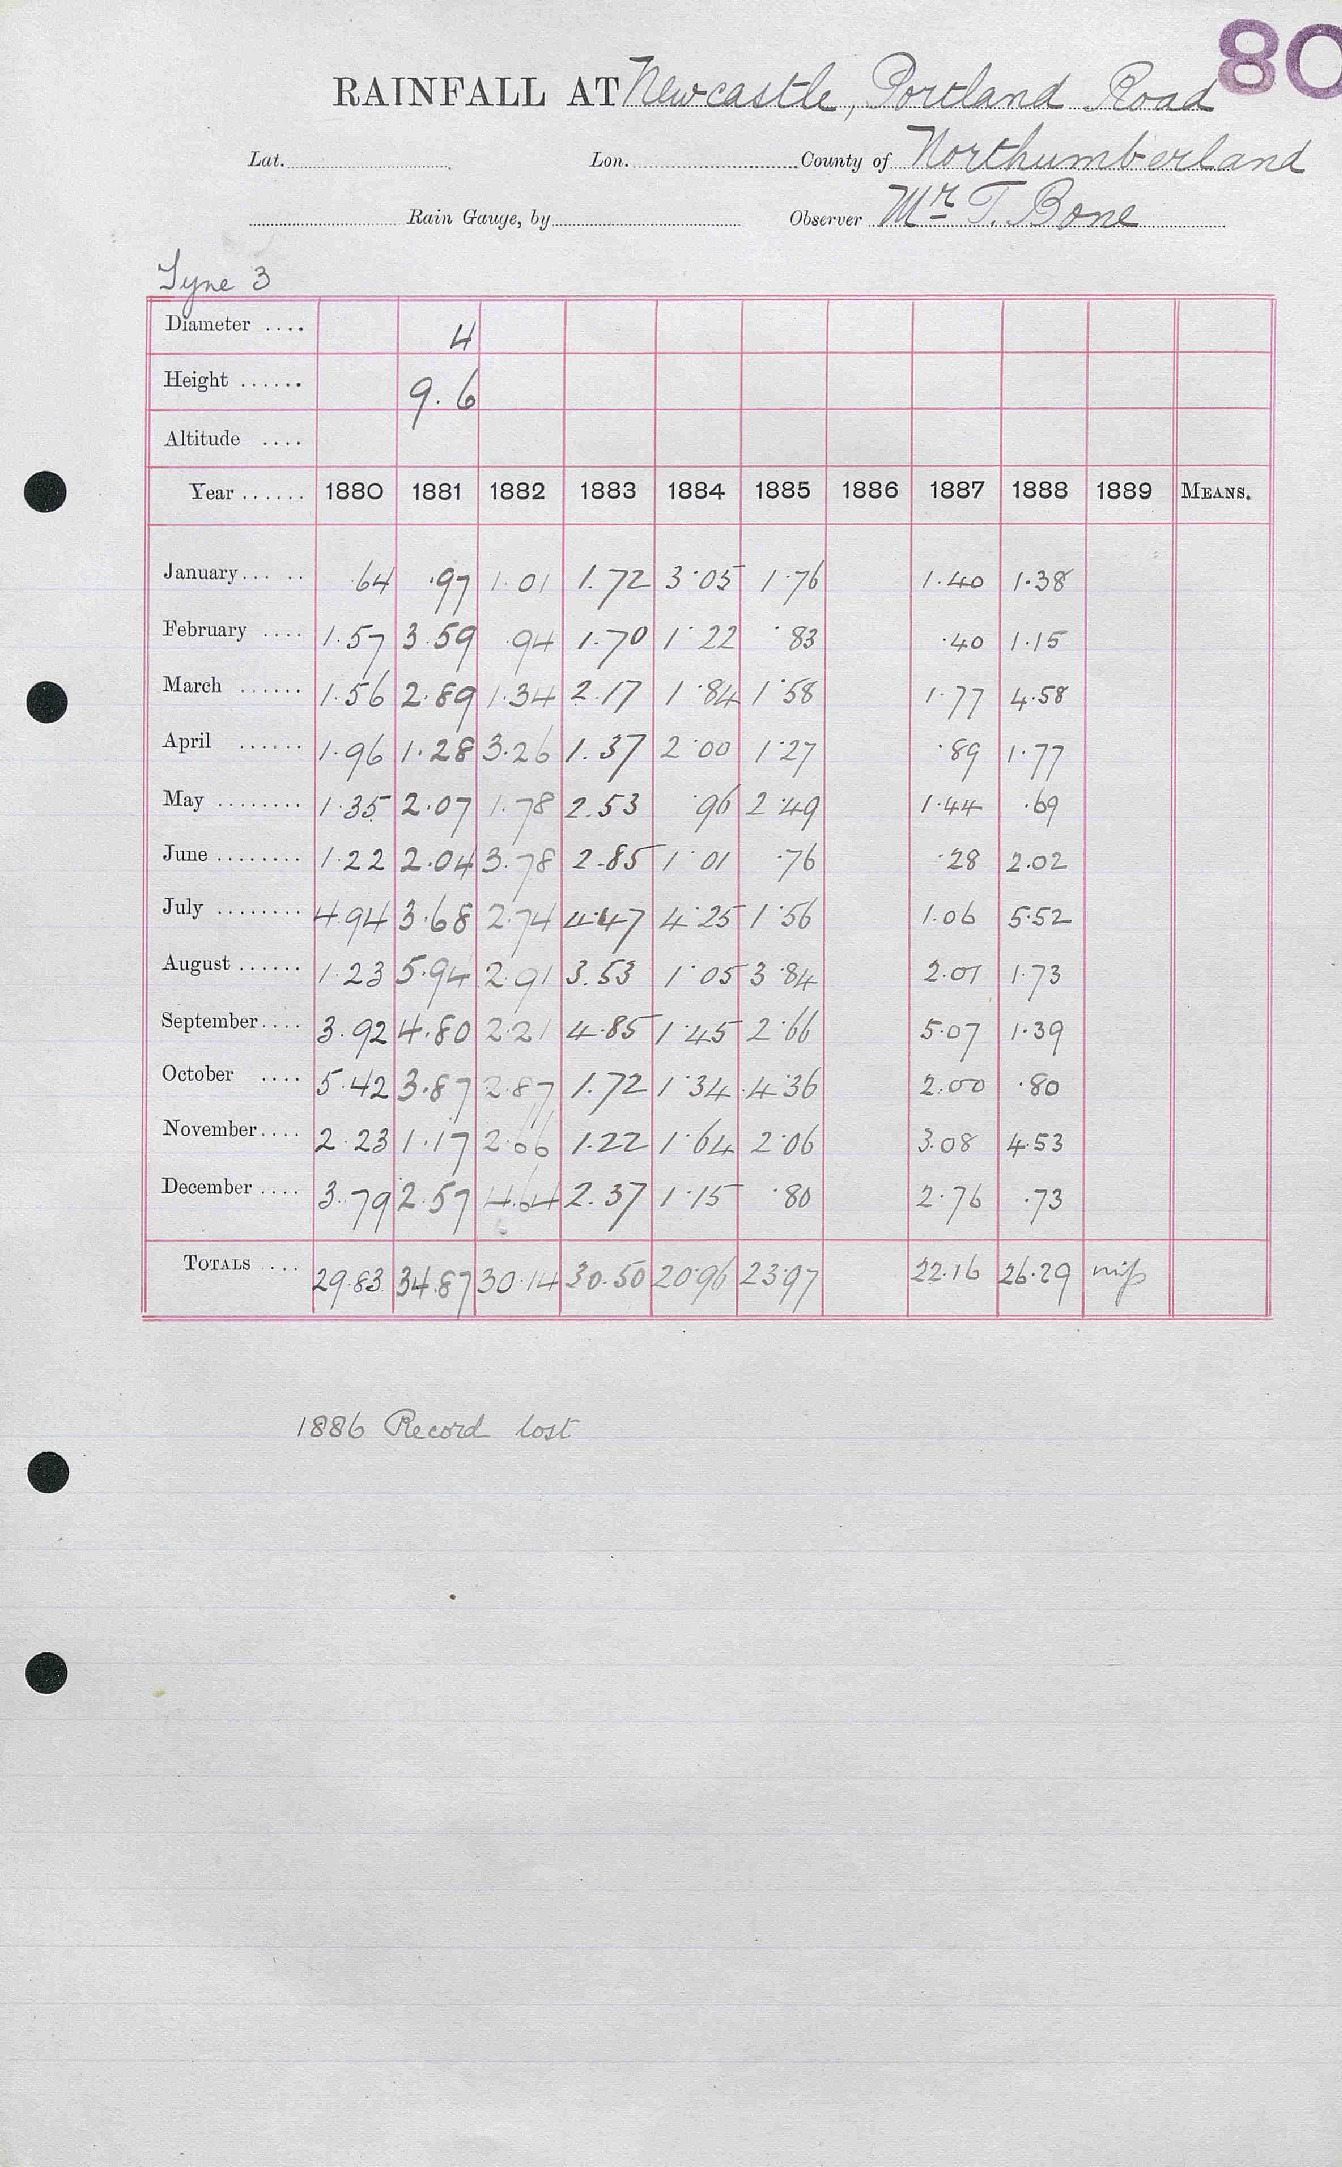 80
RAINFALL AT Newcastle, Portland Road
Lat. Lon. County of Northumberland
Rain Gauge, by Observer Mr T. Bone
Tyne 3
Diameter .... 4
Height ...... 9.6
Altitude ....
Year ...... 1880 1881 1882 1883 1884 1885 1886 1887 1888 1889 MEANS.
January... .. .64 .97 1.01 1.72 3.05 1.76 1.40 1.38
February .... 1.57 3.59 .94 1.70 1.22 .83 .40 1.15
March ...... 1.56 2.89 1.34 2.17 1.84 1.58 1.77 4.58
April ...... 1.96 1.28 3.26 1.37 2.00 1.27 .89 1.77
May ........ 1.35 2.07 1.78 2.53 .96 2.49 1.44 .69
June ........ 1.22 2.04 3.78 2.85 1.01 .76 .28 2.02
July ........ 4.94 3.68 2.74 4.47 4.25 1.56 1.06 5.52
August ...... 1.23 5.94 2.91 3.53 1.05 3.84 2.01 1.73
September.... 3.92 4.80 2.21 4.85 1.45 2.66 5.07 1.39
October .... 5.42 3.87 2.87 1.72 1.34 4.36 2.00 .80
November.... 2.23 1.17 2.66 1.22 1.64 2.06 3.08 4.53
December .... 3.79 2.57 4.64 2.37 1.15 .80 2.76 .73
TOTALS .... 29.83 34.87 30.14 30.50 20.96 23.97 22.16 26.29 miss
1886 Record lost